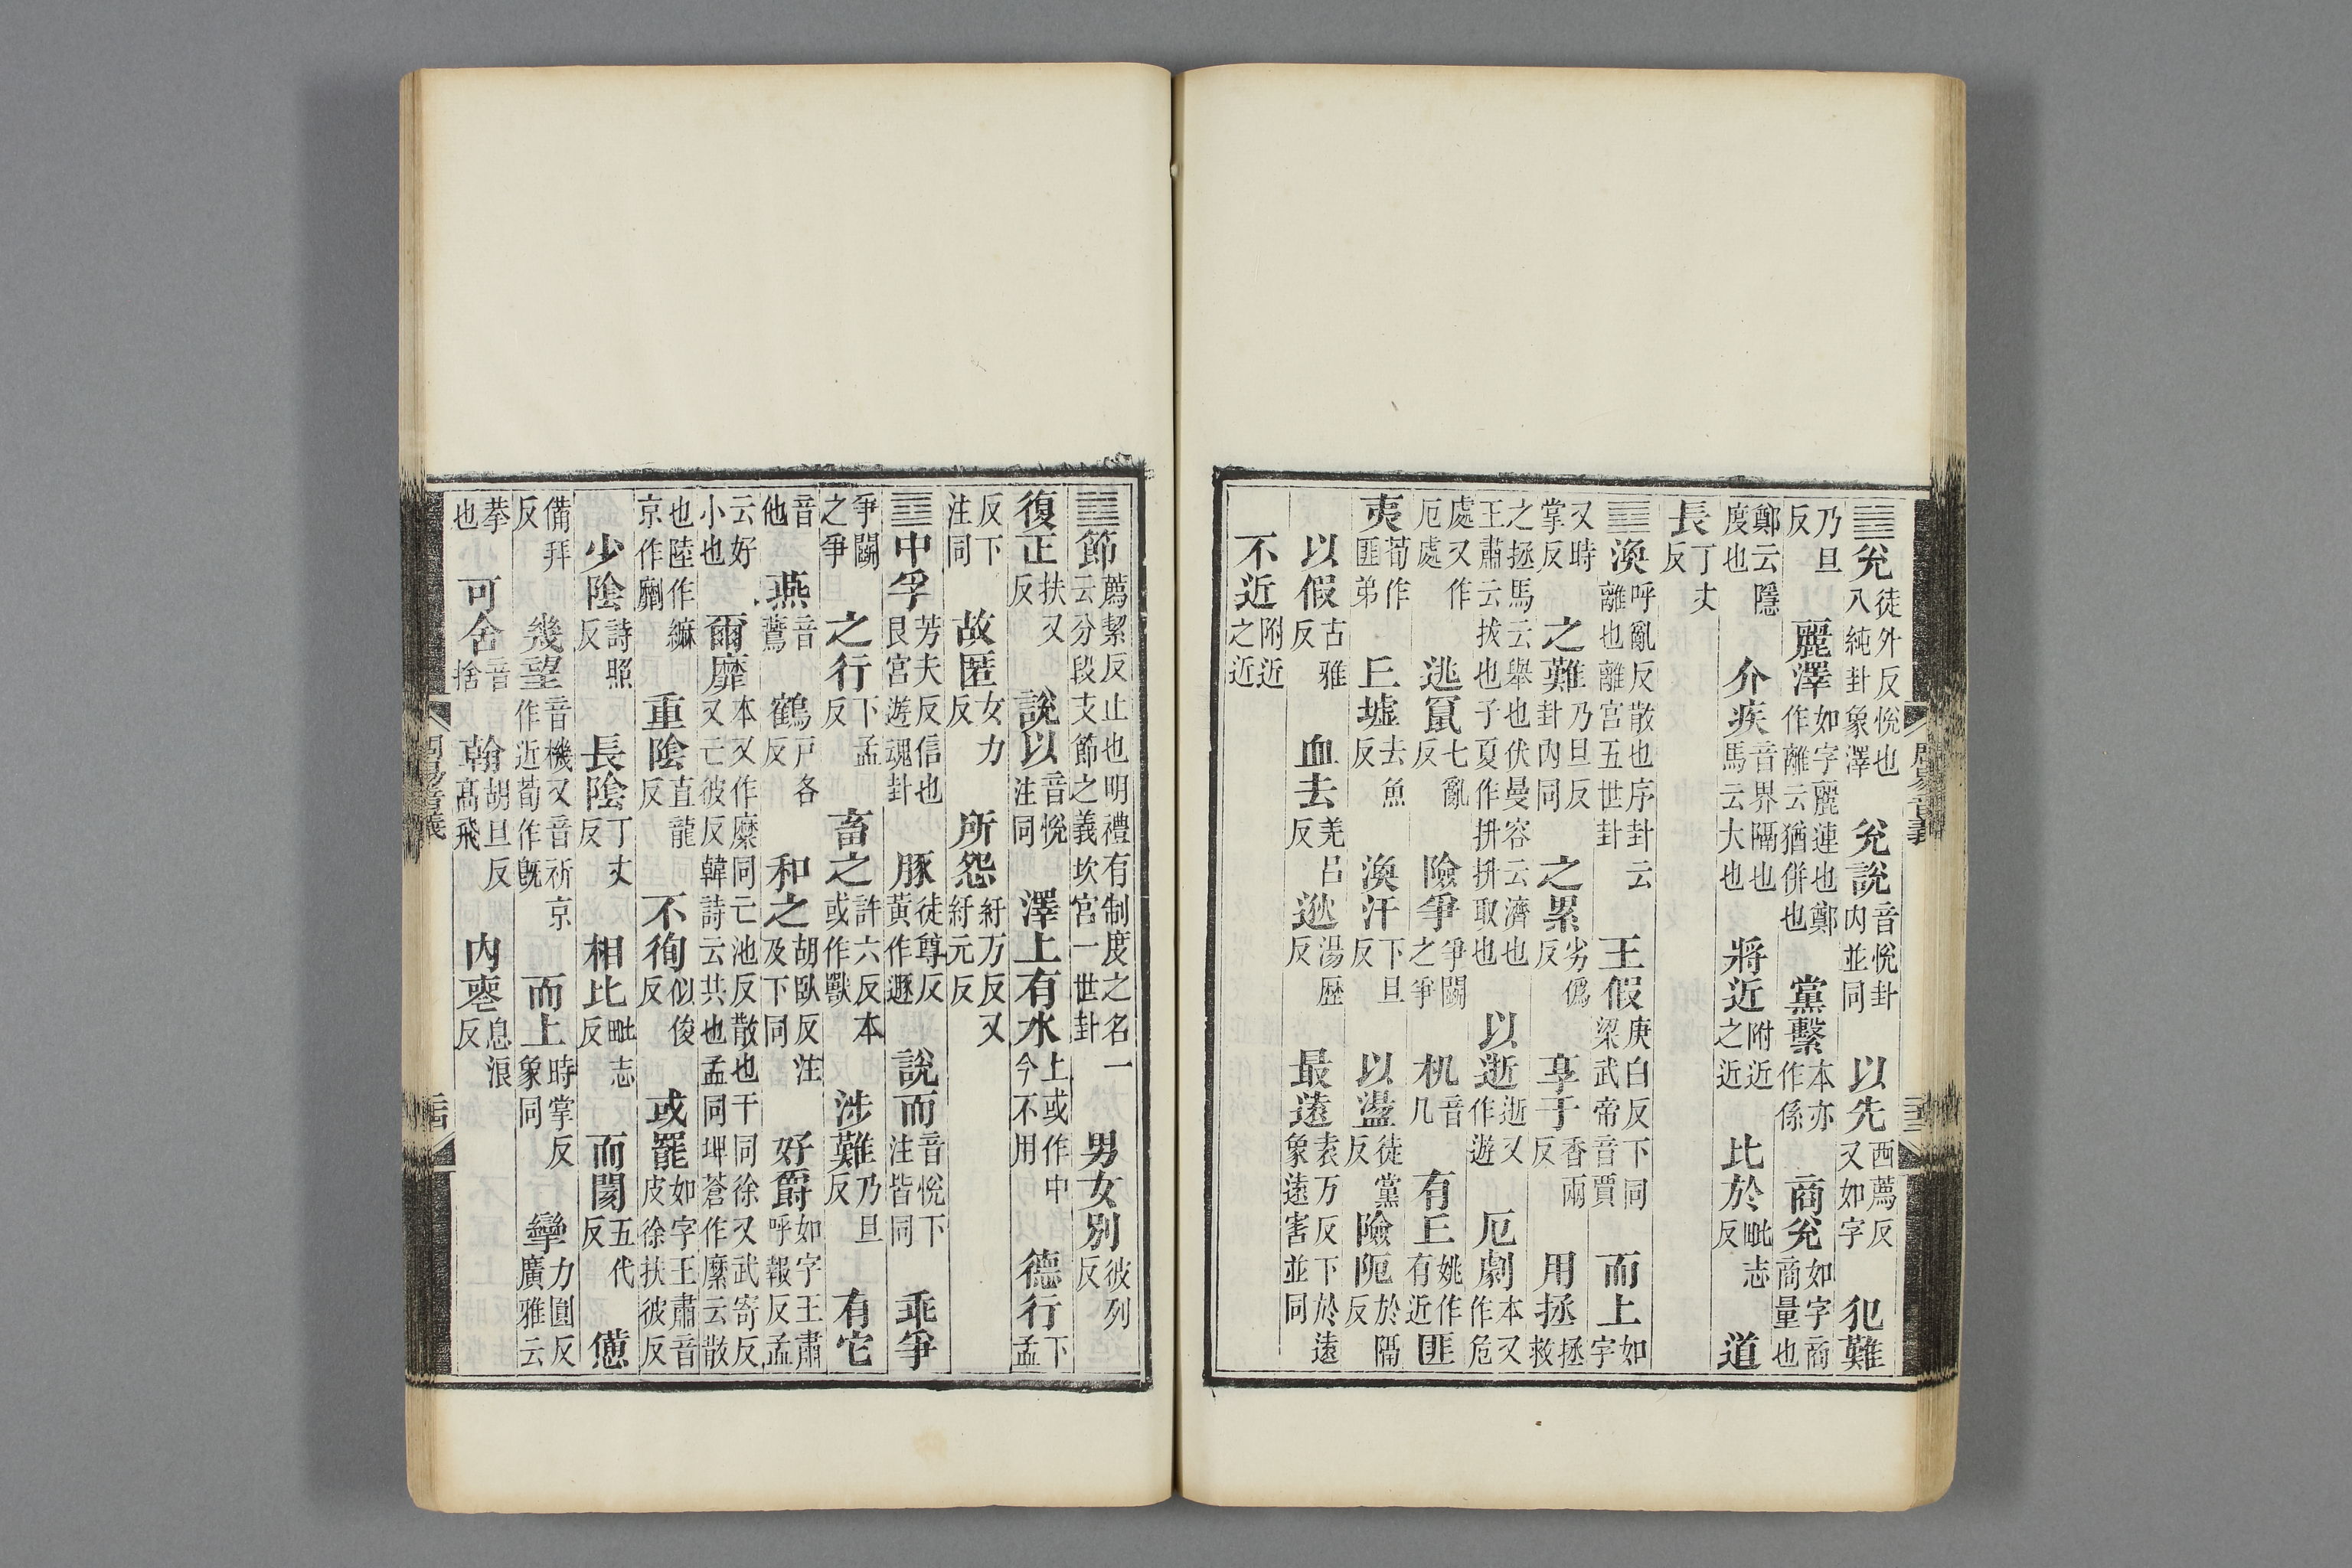 ䷹兌徒外反悅也八純卦象澤兌說音悅卦内並同以先西薦反又如字犯難
乃旦反麗澤如字麗連也鄭作離云猶併也黨繫本亦作係商兌如字商商量也
鄭云隱度也介疾音界隔也馬云大也將近附近之近比於毗志反道
長丁丈反
䷺渙呼亂反散也序卦云離也離宮五世卦王假庚白反下同梁武帝音賈而上如字
又時掌反之難乃旦反卦内同之累劣僞反享于香兩反用拯拯救
之拯馬云舉也伏曼容云濟也王肅云拔也子夏作拼拼取也以逝逝又作遊厄劇本又作危
處又作厄處逃竄七亂反險爭爭鬭之爭机音几有丘姚作有近匪
夷荀作匪弟丘墟去魚反渙汗下旦反以盪徒黨反險阨於隔反
以假古雅反血去羌呂反逖湯歴反最遠袁万反下於遠象遠害並同
不近附近之近
周易音義
䷻節薦絜反止也明禮有制度之名一云分段支節之義坎宮一世卦男女別彼列反
復正扶又反說以音悅注同澤上有水上或作中今不用德行下孟
反下注同故匿女力反所怨紆万反又紆元反
䷼中孚芳夫反信也艮宮遊魂卦豚徒尊反黃作遯說而音悅下注皆同乖爭
爭鬭之爭之行下孟反畜之許六反本或作獸涉難乃旦反有它
音他燕音鷰鶴戸各反和之胡臥反注及下同好爵如字王肅呼報反孟
云好小也爾靡本又作縻同亡池反散也干同徐又武寄反又亡彼反韓詩云共也孟同埤蒼作縻云散
也陸作䌕京作劘重陰直龍反不徇似俊反或罷如字王肅音皮徐扶彼反
少陰詩照反長陰丁丈反相比毗志反而閡五代反憊
備拜反幾望音機又音祈京作近荀作旣而上時掌反象同攣力圓反廣雅云
拳也可舍音捨翰胡旦反高飛内喪息浪反
周易音義